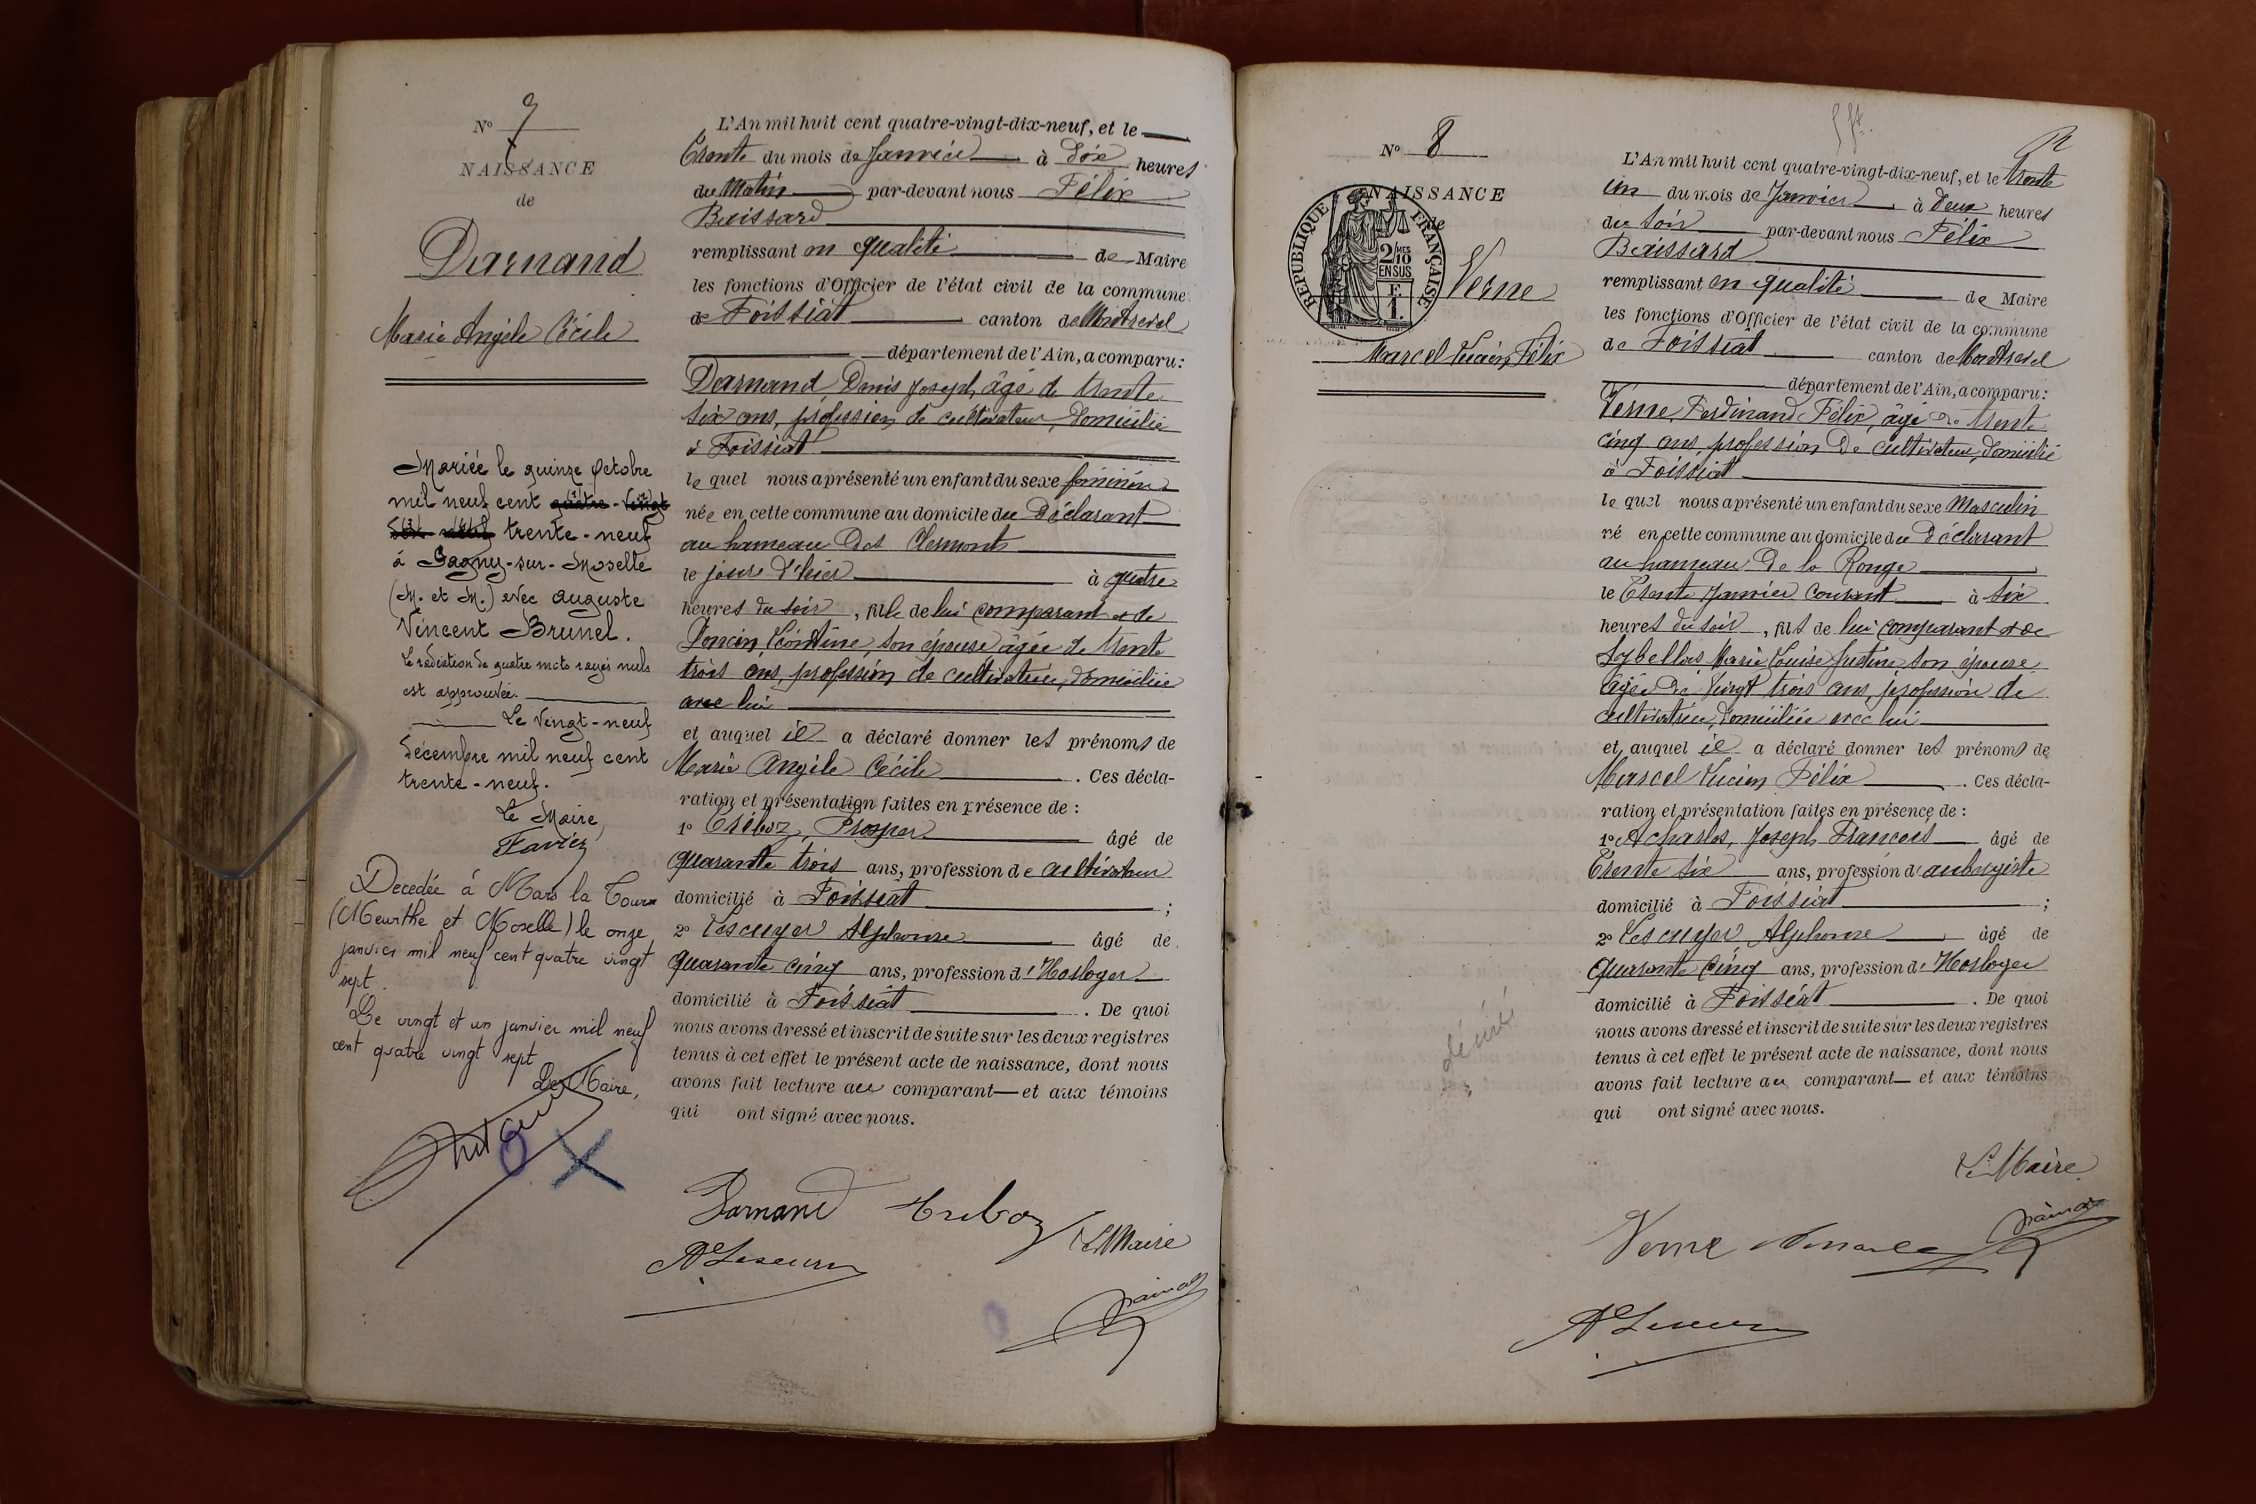 N° 7
NAISSANCE
de
Darnand
Marie Angèle Cécile
Mariée le quinze Octobre
mil neuf cent quatre-vingt
dix-neuf trente-neuf
à Pagny-sur-Moselle
(M. et M.) avec Auguste
Vincent Brunel.
La radiation de quatre mots rayés nuls
est approuvée.
Le Vingt-neuf
décembre mil neuf cent
trente-neuf.
Le Maire,
Favier
Decedée à Mars la Tour
(Meurthe et Moselle) le onze
janvier mil neuf cent quatre vingt
sept.
Le vingt et un janvier mil neuf
cent quatre vingt sept
Le Maire,
L'An mil huit cent quatre-vingt-dix-neuf, et le
Trente du mois de Janvier à dix heures
du Matin par-devant nous Félix
Buissard
remplissant en qualité de Maire
les fonctions d'Officier de l'état civil de la commune
de Foissiat canton de Montrevel
département de l'Ain, a comparu:
Darnand Denis Joseph, âgé de trente
six ans, profession de cultivateur, domicilié
à Foissiat
le quel nous a présenté un enfant du sexe féminin
née en cette commune au domicile du Déclarant
au hameau des Clermonts
le jour d'hier à quatre
heures du soir, fille de lui comparant et de
Poncin Léontine, son épouse âgée de trente
trois ans, profession de cultivatrice, domiciliée
avec lui
et auquel il a déclaré donner les prénoms de
Marie Angèle Cécile . Ces décla-
ration et présentation faites en présence de :
1° Tréboz, Prosper âgé de
quarante trois ans, profession de cultivateur
domicilié à Foissiat ;
2° Lescuyer Alphonse âgé de
quarante cinq ans, profession d'Horloger
domicilié à Foissiat . De quoi
nous avons dressé et inscrit de suite sur les deux registres
tenus à cet effet le présent acte de naissance, dont nous
avons fait lecture au comparant et aux témoins
qui ont signé avec nous.
Darnand Treboz
Le Maire
N° 8
NAISSANCE
de
RÉPUBLIQUE FRANÇAISE
2/10 MES
EN SUS
F.
1.
Verne
Marcel Lucien Félix
L'An mil huit cent quatre-vingt-dix-neuf, et le trente
un du mois de Janvier à deux heures
du soir par-devant nous Félix
Buissard
remplissant en qualité de Maire
les fonctions d'Officier de l'état civil de la commune
de Foissiat canton de Montrevel
département de l'Ain, a comparu:
Verne, Ferdinand Félix, âgé de trente
cinq ans, profession de cultivateur, domicilié
à Foissiat
le quel nous a présenté un enfant du sexe Masculin
né en cette commune au domicile du Déclarant
au hameau de la Ronge
le Trente Janvier courant à six
heures du soir, fils de lui comparant et de
Marie Louise Justine son épouse
âgée de vingt trois ans, profession de
cultivatrice, domiciliée avec lui
et auquel il a déclaré donner les prénoms de
Marcel Lucien Félix . Ces décla-
ration et présentation faites en présence de :
1° Acharles, Joseph Francois âgé de
Trente six ans, profession d'aubergiste
domicilié à Foissiat ;
2° Lescuyer, Alphonse âgé de
quarante cinq ans, profession d'Horloger
domicilié à Foissiat . De quoi
nous avons dressé et inscrit de suite sur les deux registres
tenus à cet effet le présent acte de naissance, dont nous
avons fait lecture au comparant et aux témoins
qui ont signé avec nous.
Le Maire
Verne